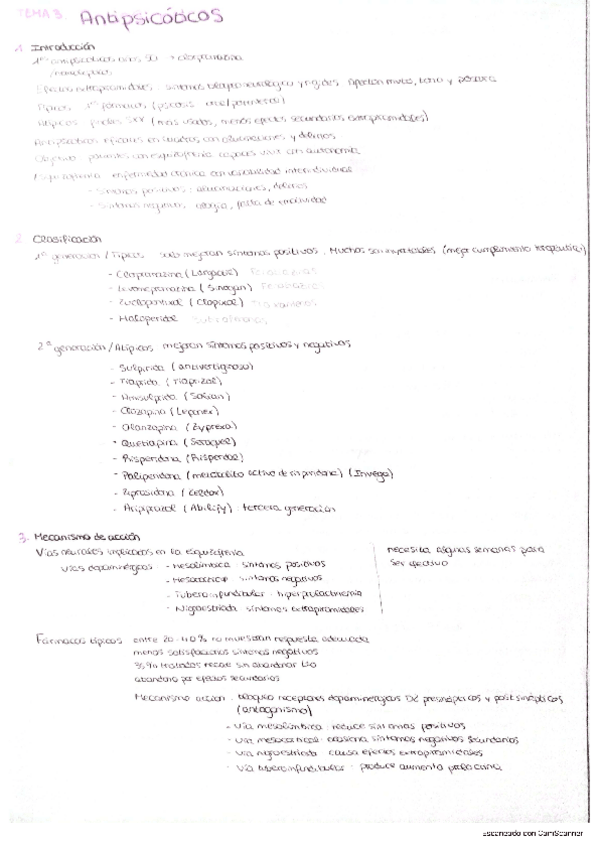 TEMA 3. Antipsicóticos
1. Introducción
1os antipsicóticos años 50 → clorpromazina
/neurolépticos
Efectos extrapiramidales síntomas neurológicos y rigidez Afectan tono y postura
Típicos 1os fármacos (psicosis
Atípicos (más usados, menos efectos secundarios extrapiramidales)
Antipsicóticos eficaces en cuadros con alucinaciones y delirios
Objetivo pacientes con esquizofrenia capaces vivir con autonomía
Esquizofrenia enfermedad crónica con variabilidad interindividual
- Síntomas positivos: alucinaciones, delirios
- Síntomas negativos alogia, falta de emotividad
2. Clasificación
1ª generación / Típicos solo mejoran síntomas positivos. Muchos son inyectables (mejor cumplimiento terapéutico)
- Clorpromazina (Largactil) Fenotiazinas
- Levomepromazina (Sinogan) Fenotiazinas
- Zuclopentixol (Clopixol) Tioxantenos
- Haloperidol Butirofenonas
2ª generación / Atípicos mejoran síntomas positivos y negativos
- Sulpirida (antivertiginoso)
- Tiaprida (Tiaprizal)
- Amisulprida (Solian)
- Clozapina (Leponex)
- Olanzapina (Zyprexa)
- Quetiapina (Seroquel)
- Risperidona (Risperdal)
- Paliperidona (metabolito activo de risperidona) (Invega)
- Ziprasidona (Zeldox)
- Aripiprazol (Abilify) tercera generación
3. Mecanismo de acción
Vías neurales implicadas en la esquizofrenia
Vías dopaminérgicas - Mesolímbica síntomas positivos
- Mesocortical síntomas negativos
- Tuberoinfundibular hiperprolactinemia
- Nigroestriada síntomas extrapiramidales
necesita algunas semanas para
ser efectivo
Fármacos típicos entre 20-40% no muestran respuesta adecuada
menos satisfactorios síntomas negativos
35% tratados recae sin abandonar tto
abandono por efectos secundarios
Mecanismo acción. bloqueo receptores dopaminérgicos D2 presinápticos y postsinápticos
(antagonismo)
- vía mesolímbica reduce síntomas positivos
- vía mesocortical ocasiona síntomas negativos secundarios
- vía nigroestriada causa efectos extrapiramidales
- vía tuberoinfundibular produce aumento prolactina
Escaneado con CamScanner